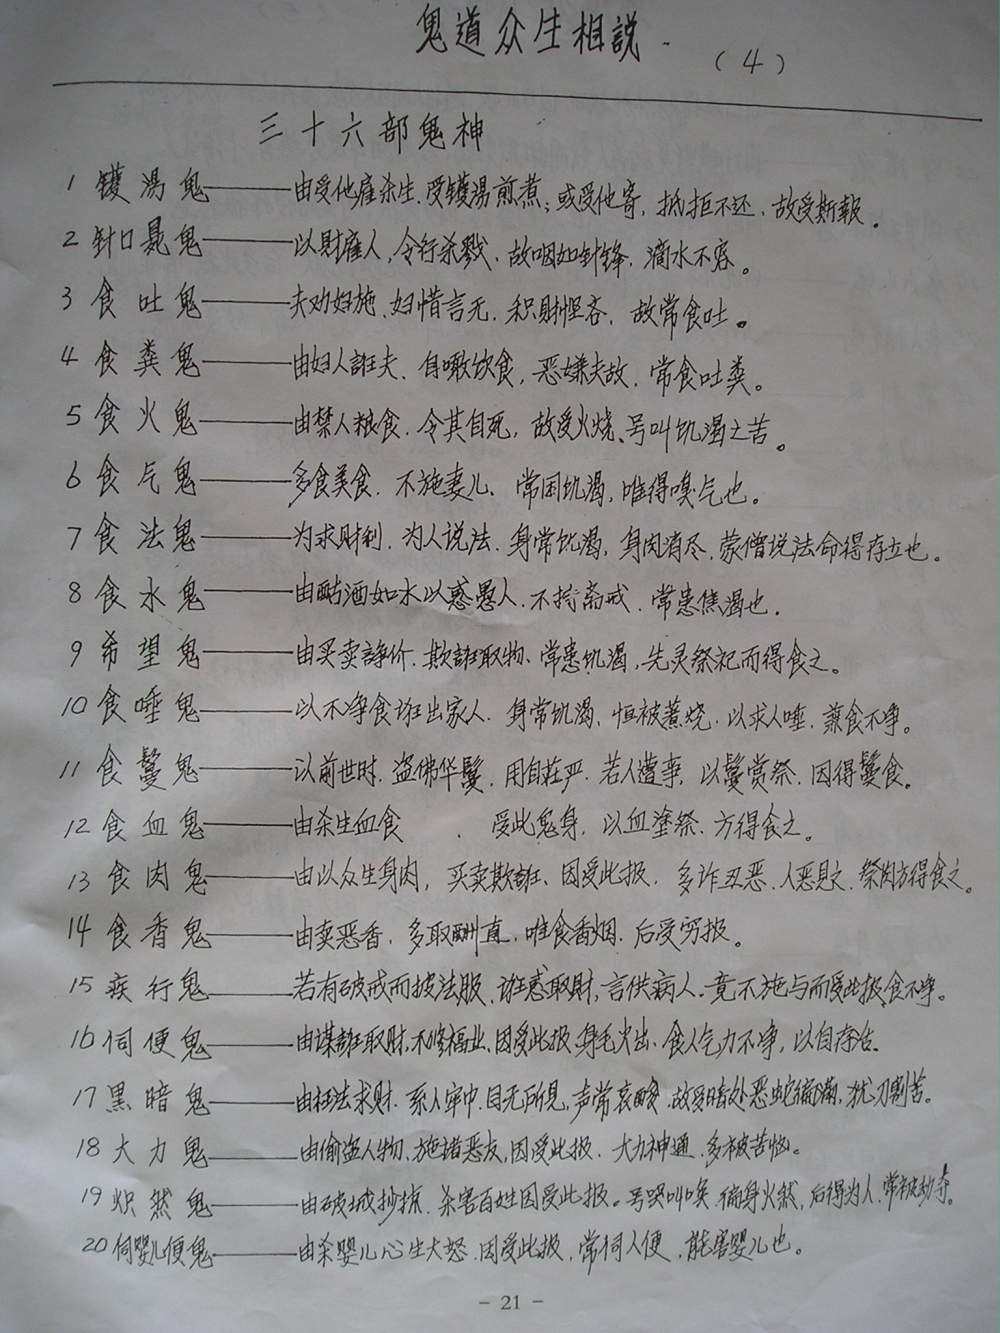 鬼道众生相説
(4)
三十六部鬼神
1 镬湯鬼——由受他雇杀生、受镬湯煎煮；或受他寄，抵拒不还、故受斯報。
2 针口臭鬼——以财雇人，令行杀戮、故咽如针锋、滴水不容。
3 食吐鬼——夫劝妇施、妇惜言无、积财悭吝、故常食吐。
4 食粪鬼——由妇人誑夫、自噉饮食，恶嫌夫故、常食吐粪。
5 食火鬼——由禁人粮食、令其自死，故受火烧、号叫饥渴之苦。
6 食气鬼——多食美食、不施妻儿、常困饥渴，唯得嗅气也。
7 食法鬼——为求财利、为人说法、身常饥渴，身肉消尽、蒙僧说法命得存立也。
8 食水鬼——由酤酒如水以惑愚人、不持斋戒、常患焦渴也。
9 希望鬼——由买卖諍价、欺誑取物、常患饥渴，先灵祭祀而得食之。
10 食唾鬼——以不净食诳出家人、身常饥渴、恒被煮烧、以求人唾、兼食不净。
11 食鬘鬼——以前世时、盗佛华鬘、用自莊严、若人遭事、以鬘赏祭、因得鬘食。
12 食血鬼——由杀生血食、受此鬼身、以血塗祭、方得食之。
13 食肉鬼——由以众生身肉，买卖欺誑、因受此报、多诈丑恶、人恶見之、祭肉方得食之。
14 食香鬼——由卖恶香、多取酬直、唯食香烟、后受穷报。
15 疾行鬼——若有破戒而披法服、诳惑取财，言供病人、竟不施与而受此报食不净。
16 伺便鬼——由谋誑取财、不修福业、因受此报、身毛火出、食人气力不净，以自存活。
17 黑暗鬼——由枉法求财、系人牢中、目无所見，声常哀酸、故受暗处恶蛇徧满，犹刀割苦。
18 大力鬼——由偷盗人物、施诸恶友，因受此报、大力神通、多被苦恼。
19 炽然鬼——由破城抄掠、杀害百姓因受此报。号哭叫唤、徧身火然，后得为人、常被劫夺。
20 伺婴儿便鬼——由杀婴儿心生大怒、因受此报、常伺人便、能害婴儿也。
- 21 -